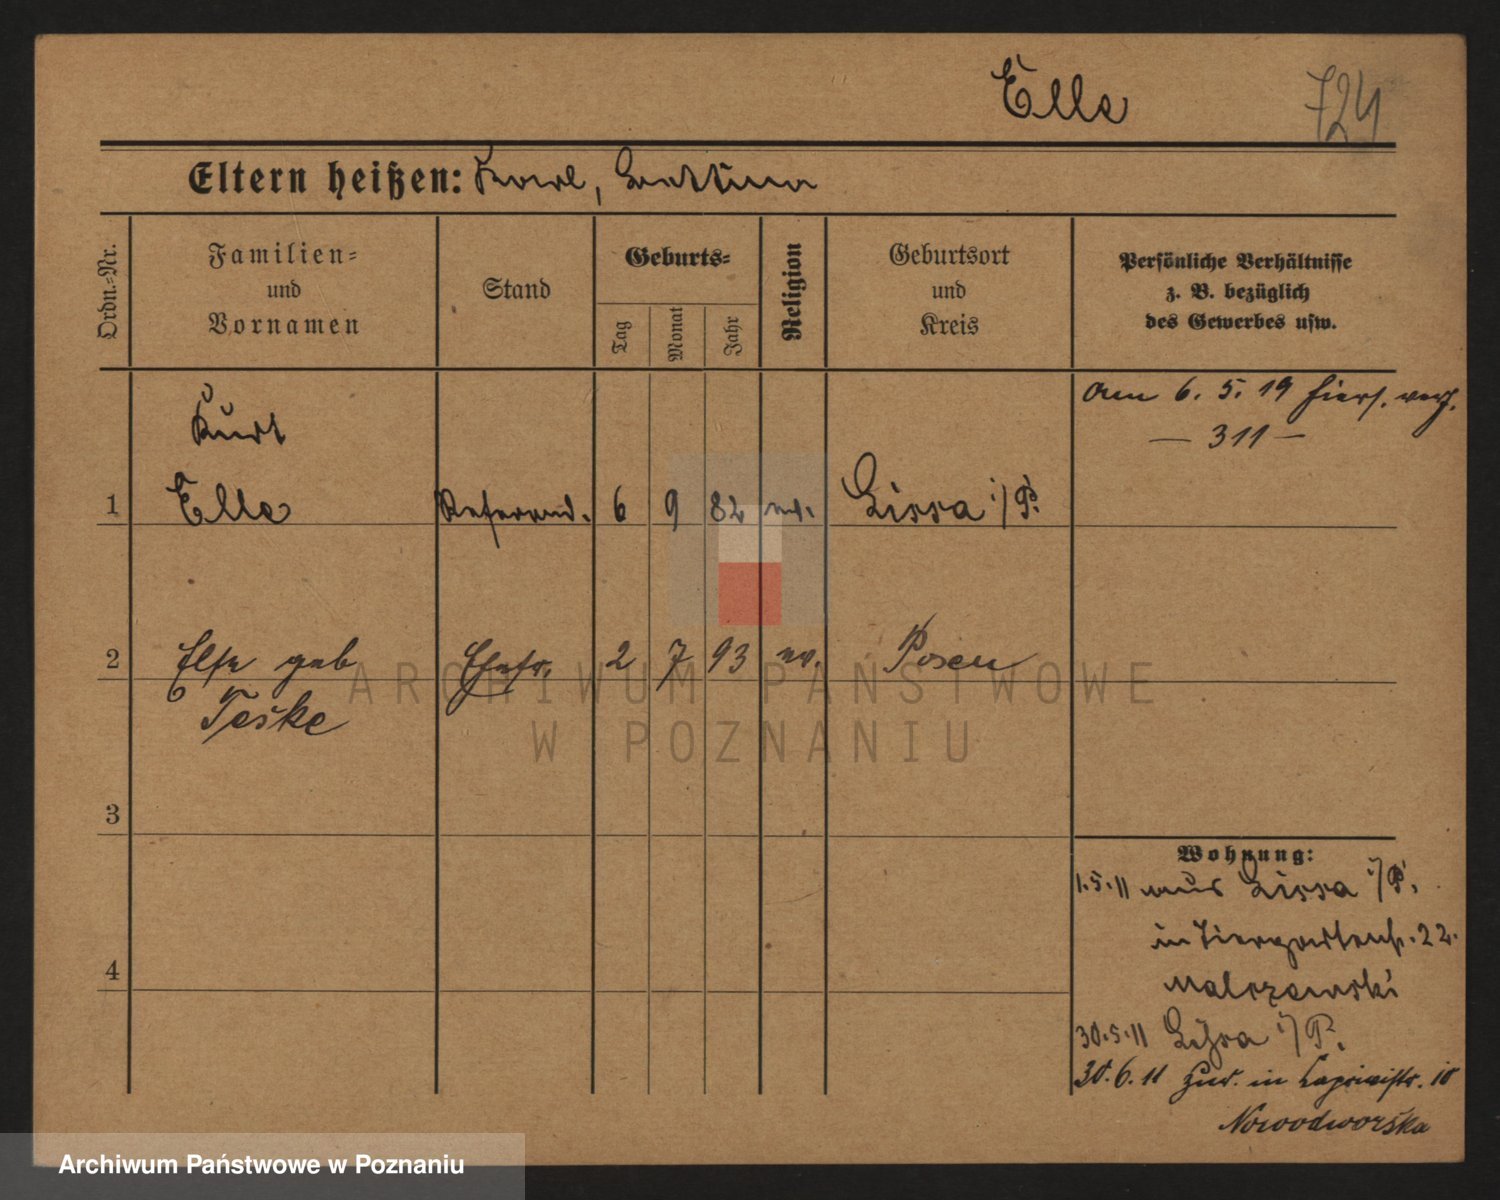 Elle
724
Eltern heißen: Karl, Bertina
Ordn.-Nr.
Familien-
und
Vornamen
Stand
Geburts-
Tag
Monat
Jahr
Religion
Geburtsort
und
Kreis
Persönliche Verhältnisse
z. B. bezüglich
des Gewerbes usw.
am 6. 5. 19 hiers. verh.
— 311 —
Kurt
1 Elle Referend. 6 9 82 ev. Lissa i/P.
2 Else geb Ehefr. 2 7 93 ev. Posen
Teske
3
4
Wohnung:
1.5.11 aus Lissa i/P.
in Tiergartenstr. 22.
Malczewski
30.5.11 Lissa i/P.
30.6.11 zur. in Capriviistr. 10
Nowodworska
ARCHIWUM PAŃSTWOWE
W POZNANIU
Archiwum Państwowe w Poznaniu